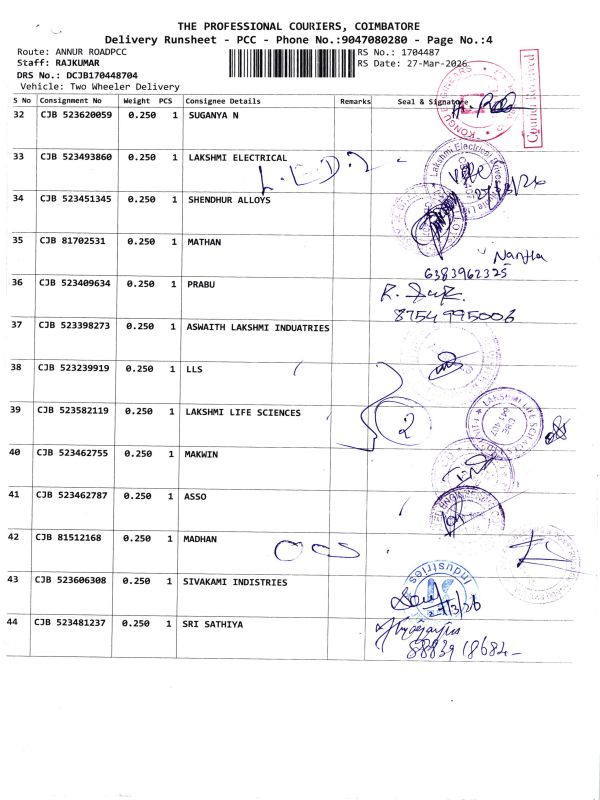 THE PROFESSIONAL COURIERS, COIMBATORE
Delivery Runsheet - PCC - Phone No.:9047080280 - Page No.:4
Route: ANNUR ROADPCC RS No.: 1704487
Staff: RAJKUMAR RS Date: 27-Mar-2026
DRS No.: DCJB170448704
Vehicle: Two Wheeler Delivery
S No Consignment No Weight PCS Consignee Details Remarks Seal & Signature
32 CJB 523620059 0.250 1 SUGANYA N
33 CJB 523493860 0.250 1 LAKSHMI ELECTRICAL
34 CJB 523451345 0.250 1 SHENDHUR ALLOYS
35 CJB 81702531 0.250 1 MATHAN
Nantha
6383962325
36 CJB 523409634 0.250 1 PRABU
8754995006
37 CJB 523398273 0.250 1 ASWAITH LAKSHMI INDUATRIES
38 CJB 523239919 0.250 1 LLS
39 CJB 523582119 0.250 1 LAKSHMI LIFE SCIENCES
2
LAKSHMI LIFE
CBE
641 407
40 CJB 523462755 0.250 1 MAKWIN
41 CJB 523462787 0.250 1 ASSO
42 CJB 81512168 0.250 1 MADHAN
43 CJB 523606308 0.250 1 SIVAKAMI INDISTRIES
Industries
44 CJB 523481237 0.250 1 SRI SATHIYA
8883918684